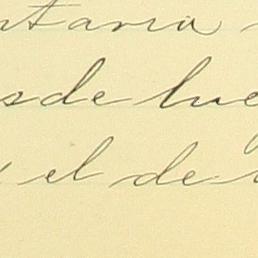 ntaria
sde lue
el de